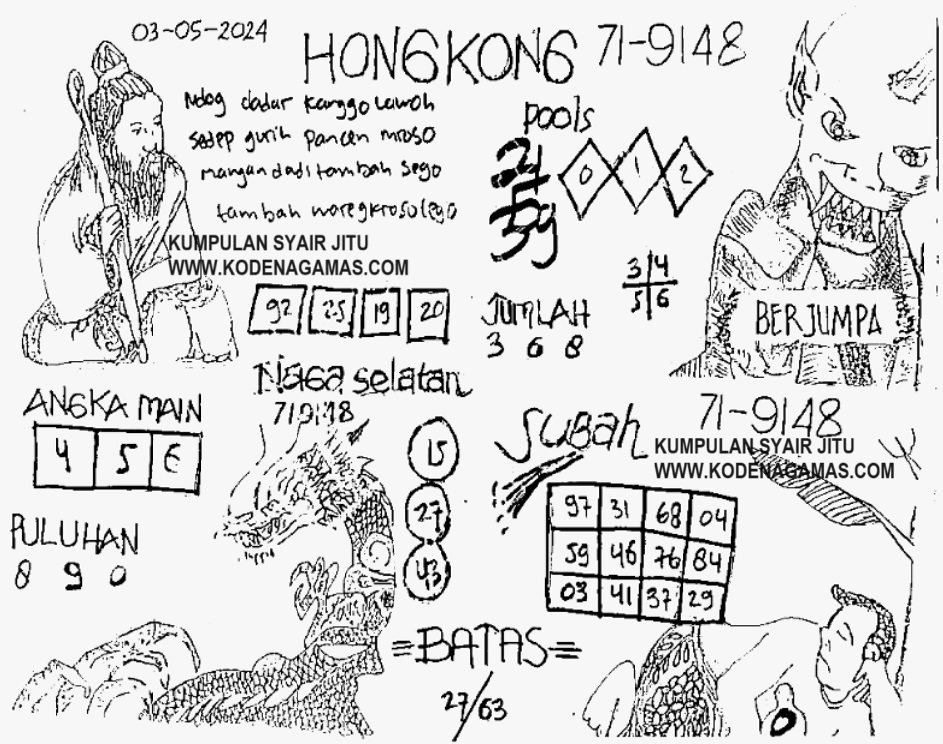 03-05-2024
HONGKONG 71-9148
Ndog dadar kanggo lawoh
sedep gurih pancen mroso
mangan dadi tambah sego
tambah waregkroso lego
pools
0 1 2
KUMPULAN SYAIR JITU
WWW.KODENAGAMAS.COM
92 25 19 20
3 4
5 6
JUMLAH
3 6 8
BERJUMPA
Naga selatan
719148
ANGKA MAIN
4 5 6
PULUHAN
8 9 0
15
27
43
SUBAH
71-9148
KUMPULAN SYAIR JITU
WWW.KODENAGAMAS.COM
97 31 68 04
59 46 76 84
03 41 37 29
=BATAS=
27/63
0